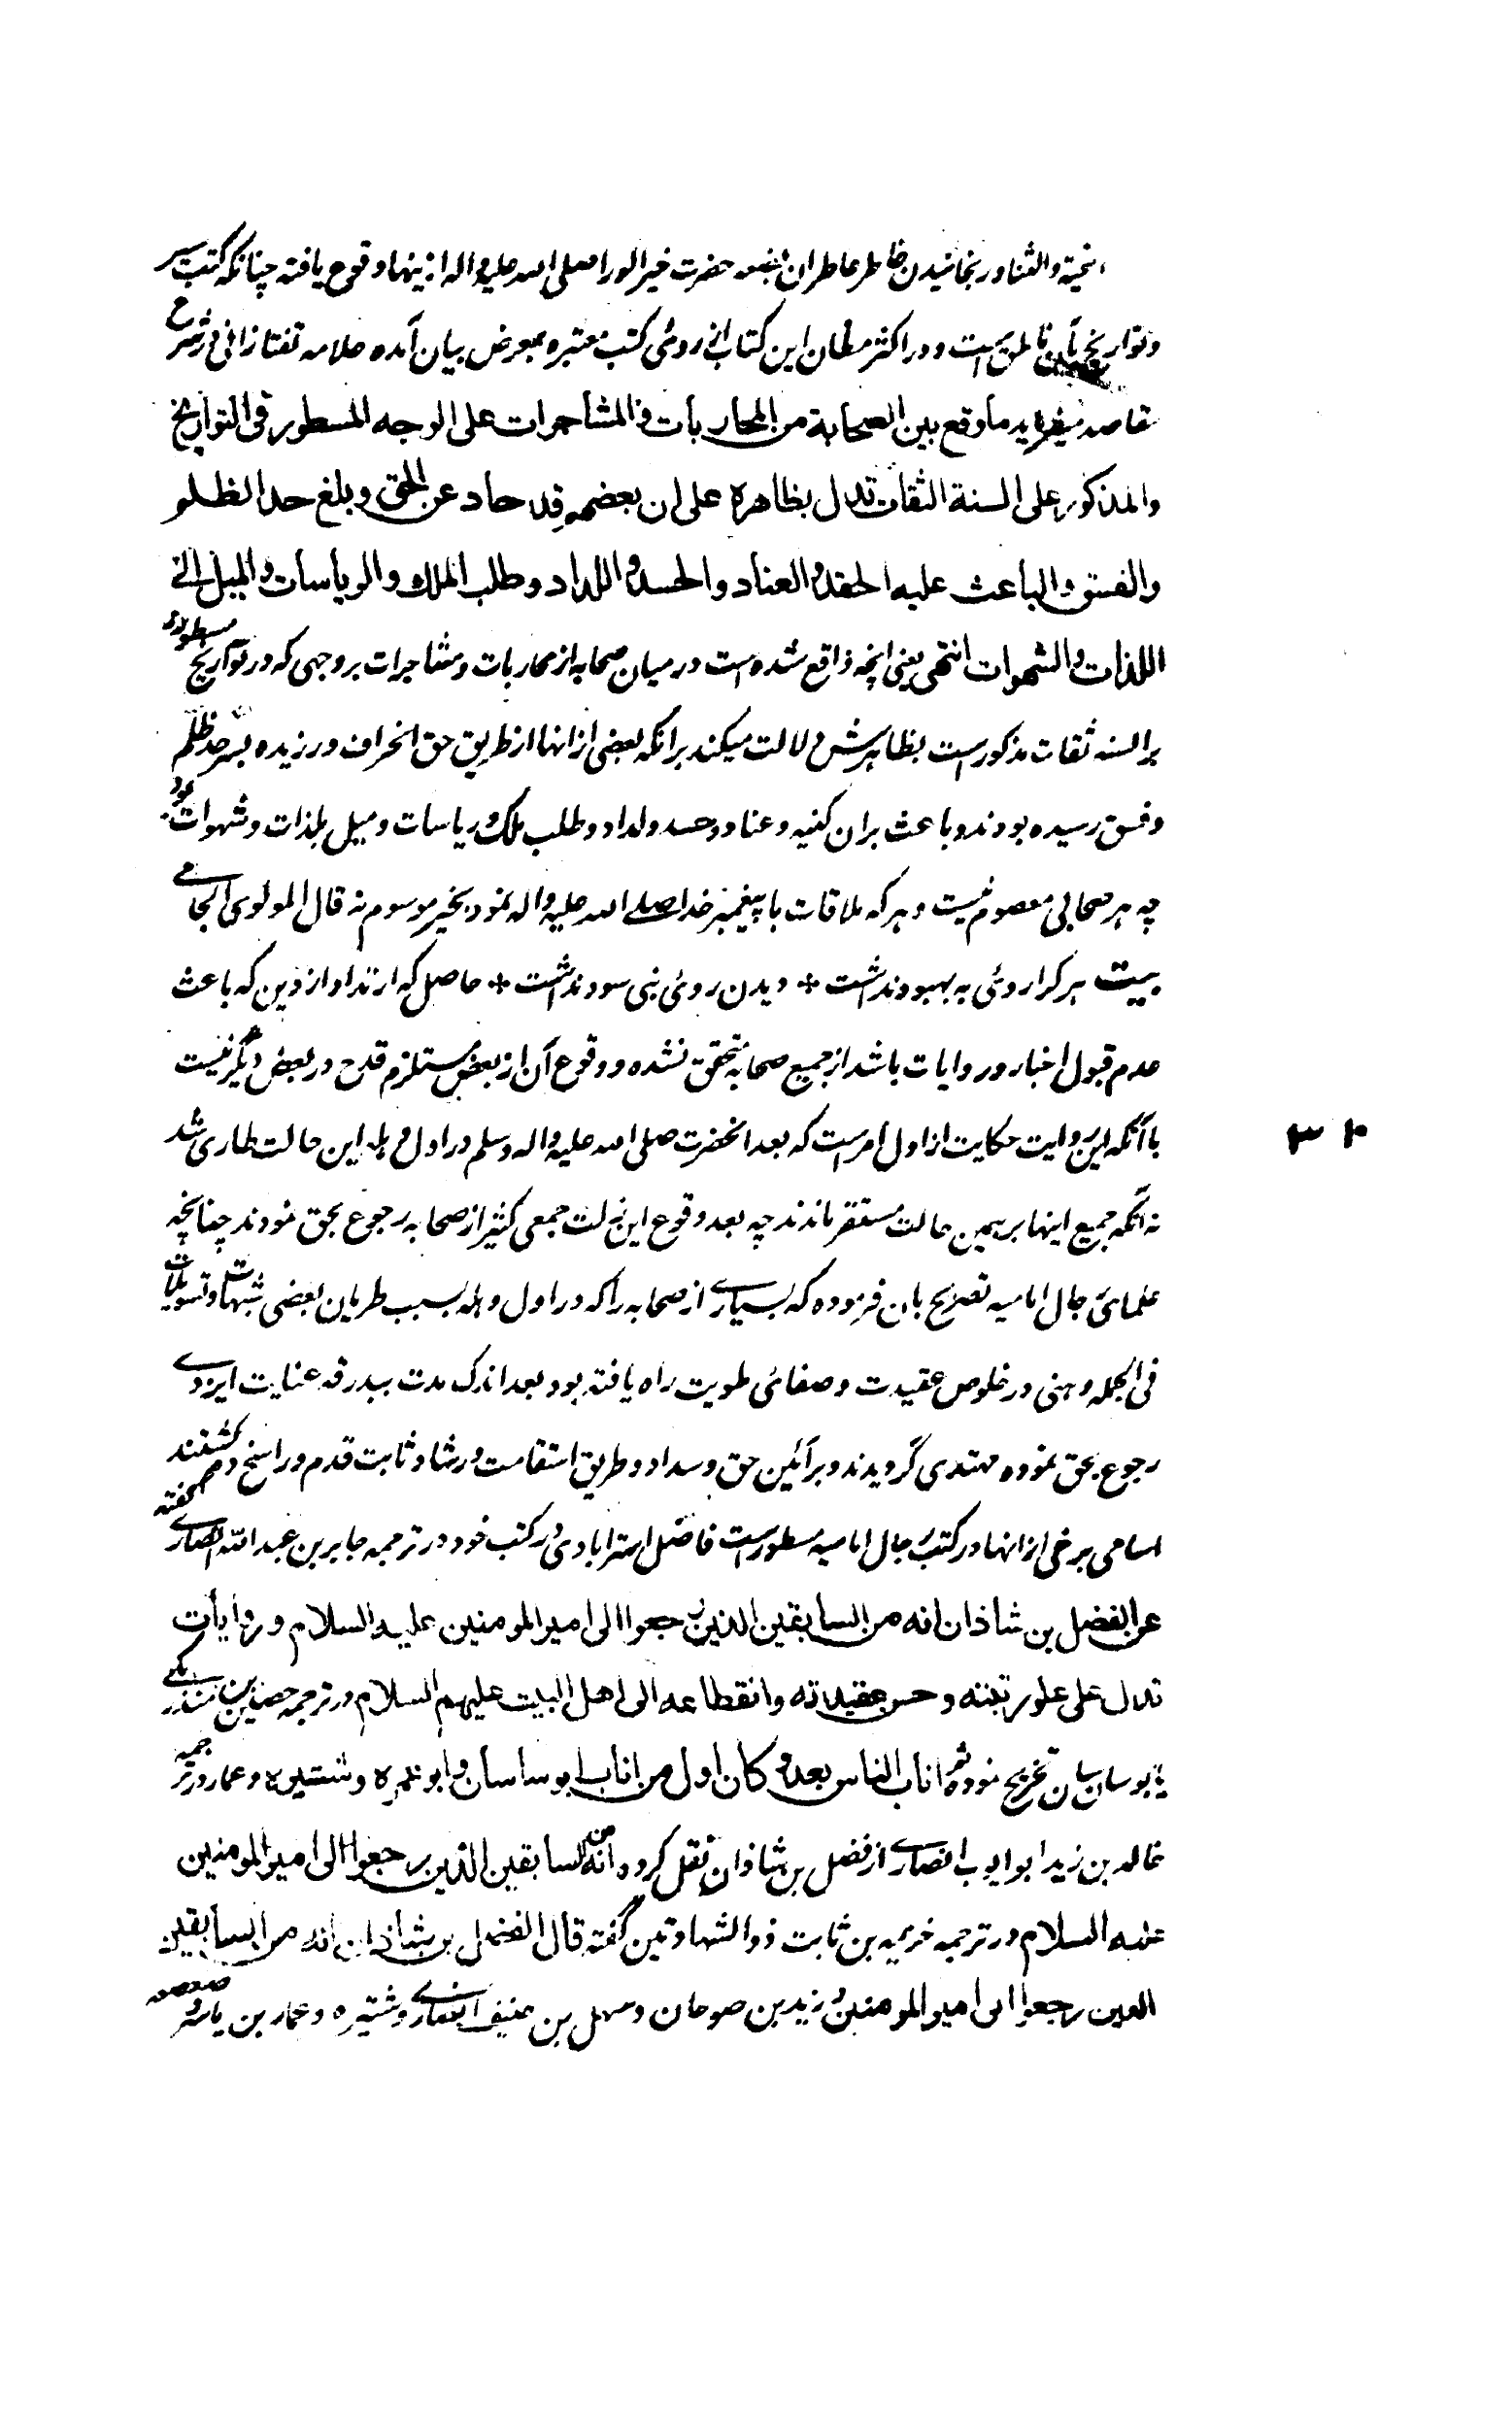 التحیة والثنا و رنجانیدن خاطر عاطر ان بضعه حضرت خیر الورا صلی الله علیه و اله ازینها وقوع یافته چنانکه کتب سیر
و تواریخ بآن ناطق است و در اکثر مظان این کتاب از روئی کتب معتبره بمعرض بیان آمده علامه تفتازانی در شرح
مقاصد میفرماید ما وقع بین الصحابة من المحاربات و المشاجرات علی الوجه المسطور فی التواریخ
والمذکور علی السنة الثقات تدل بظاهره علی ان بعضهم قد حاد عن الحق و بلغ حد الظلم
والفسق والباعث علیه الحقد و العناد والحسد و اللداد و طلب الملك والریاسات والمیل الی
اللذات والشهوات انتهی یعنی انچه واقع شده است در میان صحابه از محاربات و مشاجرات بر وجهی که در تواریخ مسطور و
بر السنه ثقات مذکور است بظاهرش دلالت میکند بر انکه بعضی از انها از طریق حق انحراف ورزیده بسرحد ظلم
و فسق رسیده بودند و باعث بران کینه و عناد و حسد و لداد و طلب ملک و ریاسات و میل بلذات و شهوات بود
چه هر صحابی معصوم نیست و هر که ملاقات با پیغمبر خدا صلے الله علیه و اله نمود بخیر موسوم نه قال المولوی الجامے
بیت هر کرا روئی به بهبود نداشت * دیدن روئی نبی سود نداشت * حاصل که ارتداد از دین که باعث
عدم قبول اخبار و روایات باشد از جمیع صحابه متحقق نشده و وقوع آن از بعض مستلزم قدح در بعض دیگر نیست
با آنکه این روایت حکایت از اول امر است که بعد انحضرت صلی الله علیه و اله وسلم در اول وهله این حالت طاری شد
نه آنکه جمیع اینها بر همین حالت مستقر ماندند چه بعد وقوع این زلت جمعی کثیر از صحابه رجوع بحق نمودند چنانچه
علمای رجال امامیه تصریح بان فرموده که بسیارے از صحابه را که در اول وهله بسبب طریان بعضی شبهات و تسویلات
فی الجمله وهنی در خلوص عقیدت و صفائی طویت راه یافته بود بعد اندک مدت ببدرقه عنایت ایزدے
رجوع بحق نموده مهتدی گردیدند و بر آئین حق و سداد و طریق استقامت و رشاد ثابت قدم و راسخ دم گشتند
اسامی برخی از انها در کتب رجال امامیه مسطور است فاضل استرابادی در کتب خود در ترجمه جابر بن عبد الله انصارے گفته
عن الفضل بن شاذان انه من السابقین الذین رجعوا الی امیر المومنین علیه السلام و روایات
تدل علی علو رتبته و حسن عقیدته وانقطاعه الی اهل البیت علیهم السلام و در ترجمه حصین بن منذر مکنے
بابو ساسان تخریج نموده ثم اناب الناس بعد و کان اول من اناب ابو ساسان و ابو عمره و شتیره و عمار و در ترجمه
خالد بن زید ابو ایوب انصارے از فضل بن شاذان نقل کرده انه من السابقین الذین رجعوا الی امیر المومنین
علیه السلام و در ترجمه خزیمه بن ثابت ذو الشهادتین گفته قال الفضل بن شاذان انه من السابقین
الذین رجعوا الی امیر المومنین و زید بن صوحان و سهل بن حنیف انصارے و شتیره و عمار بن یاسر و صعصعه
۳۲